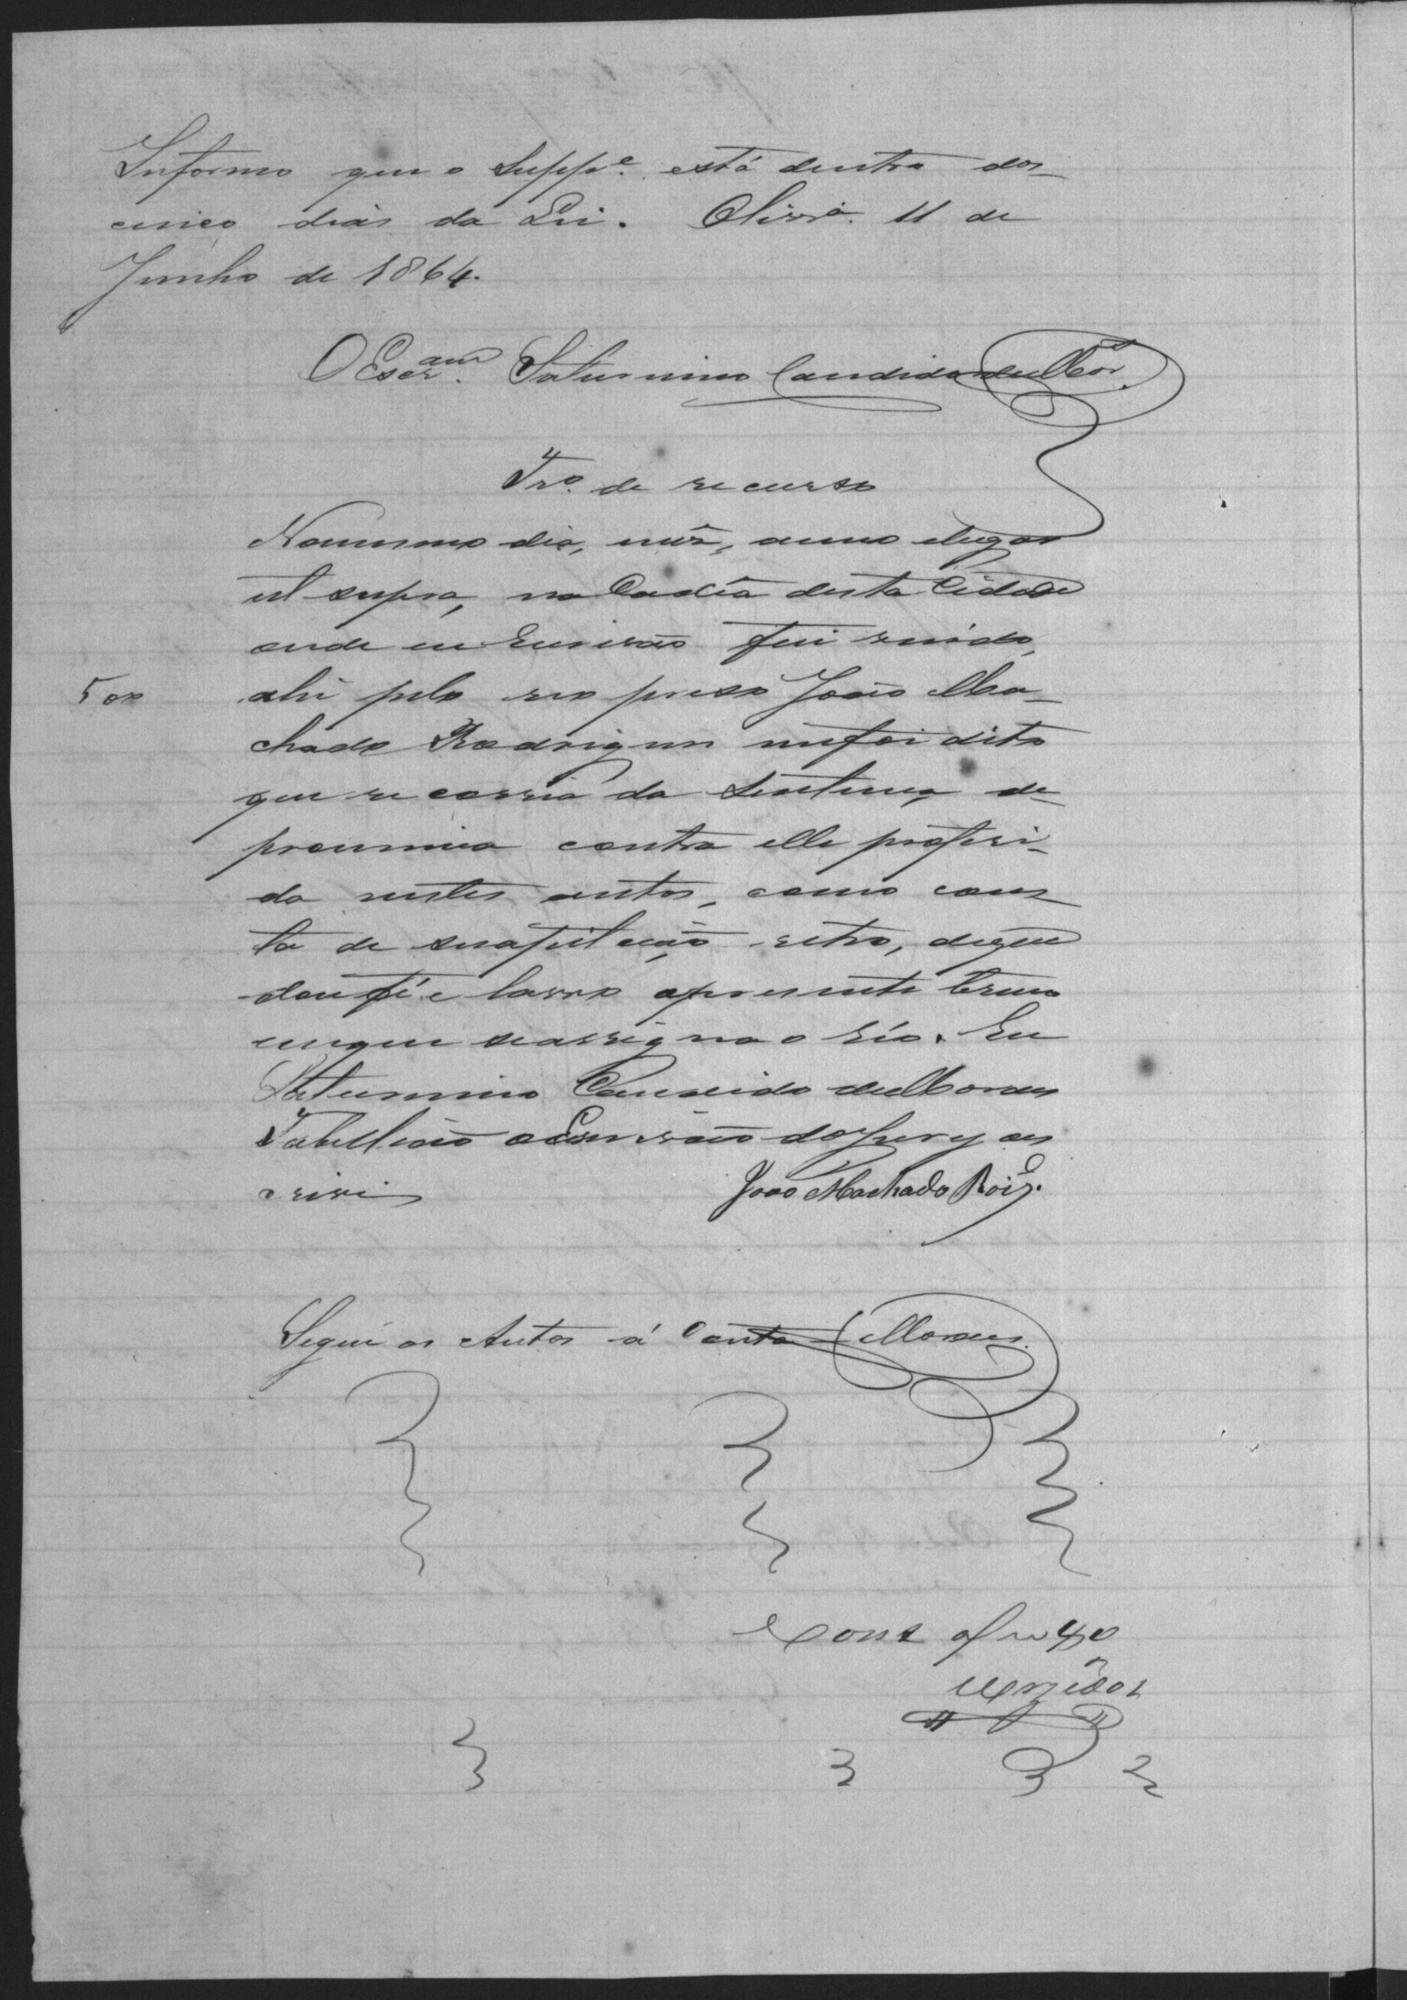 Informo que o Supp.e está dentro dos
cinco dias da Lei. 11 de
Junho de 1864.
O Escr.am Saturnino Candido de Mor.
Tr.o de recurso
No mesmo dia, mês, anno elugar
ut supra, na Cadêa desta Cidade
onde eu Escrivão fui vindo,
ahi pelo reo preso João Ma-
500
chado Rodrigues mefoi dito
que recorria da Sentença de
pronuncia contra elle proferi-
da nestes autos, como cons
ta de suapetição retro, deque
doufé e lavro opresente termo
emque seassigna o réo. Eu
Saturnino Candido deMoraes
Tabellião eEscrivão doJury o es
crevi João Machado Roiz.
Seguem os Autos á Conta Moraes